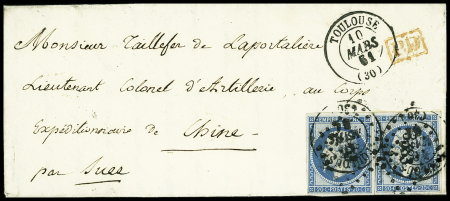 Monsieur Taillefer de Laportalière
Lieutenant Colonel d'Artillerie, au Corps
Expéditionnaire de Chine
par Suez
TOULOUSE
10
MARS
61
(30)
P.D.
20 C POSTES 20 C
20 C POSTES 20 C